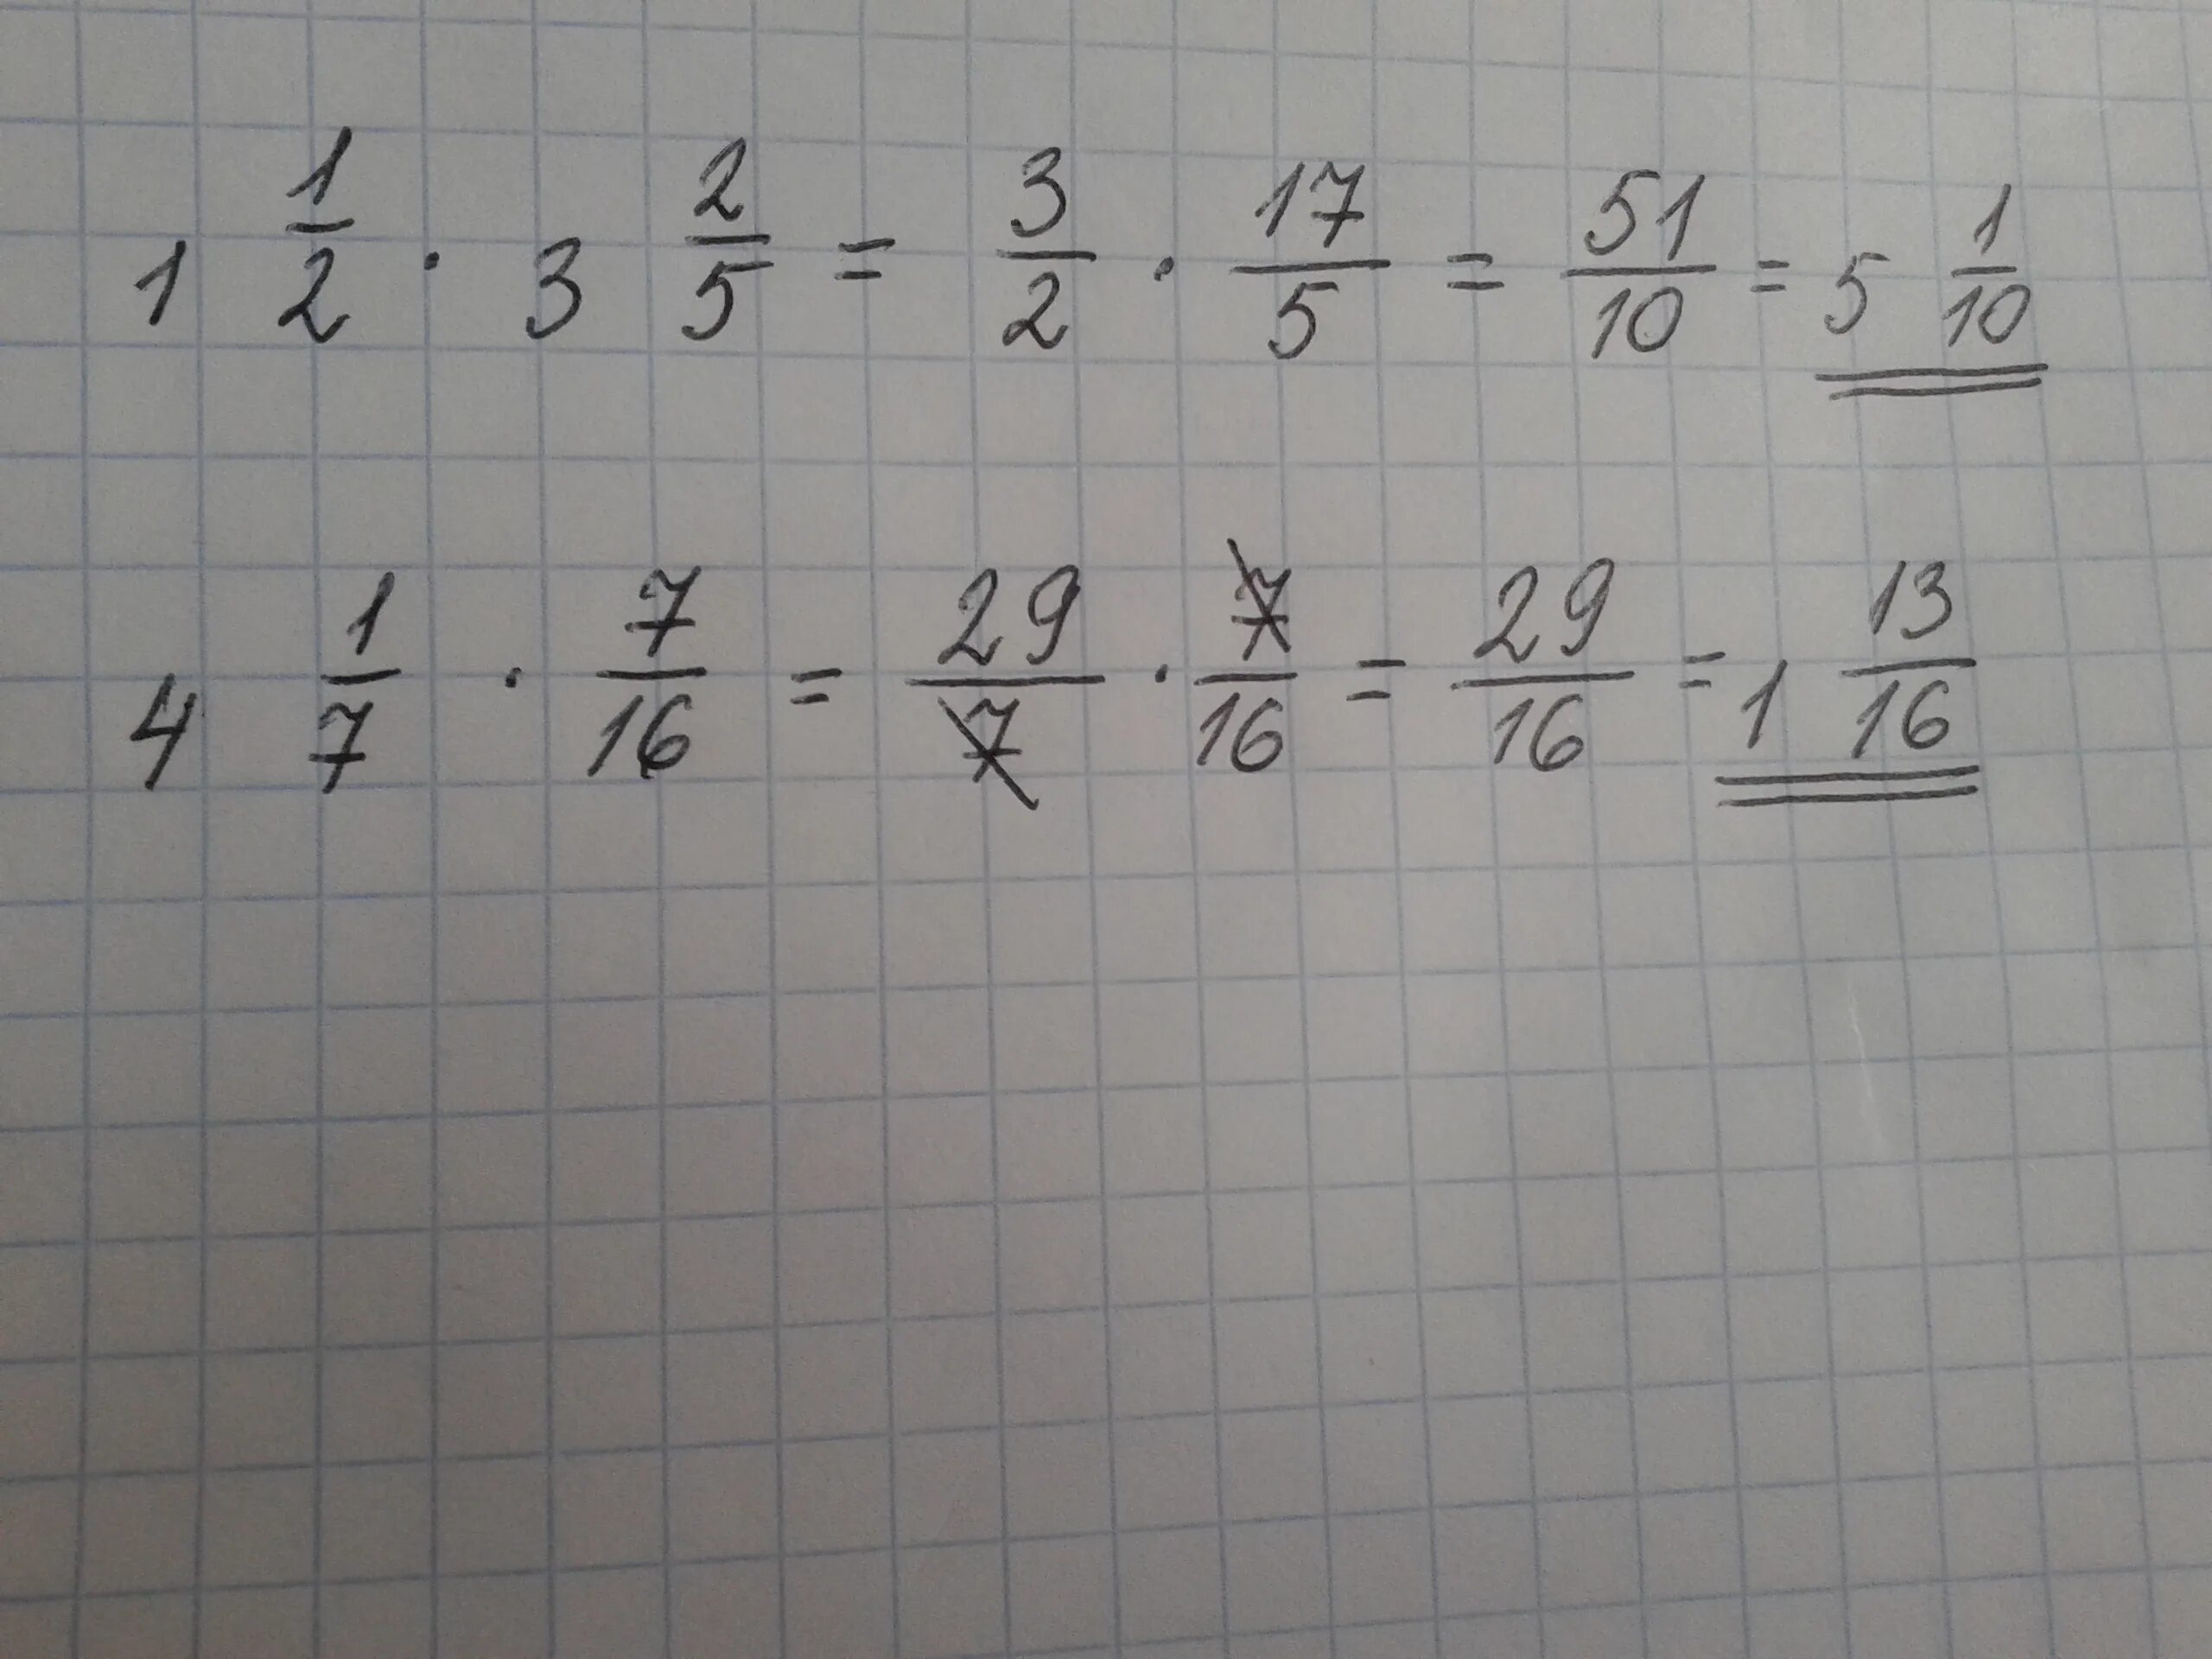 1 1/2 · 3 2/5 = 3/2 · 17/5 = 51/10 = 5 1/10
4 1/7 · 7/16 = 29/7 · 7/16 = 29/16 = 1 13/16